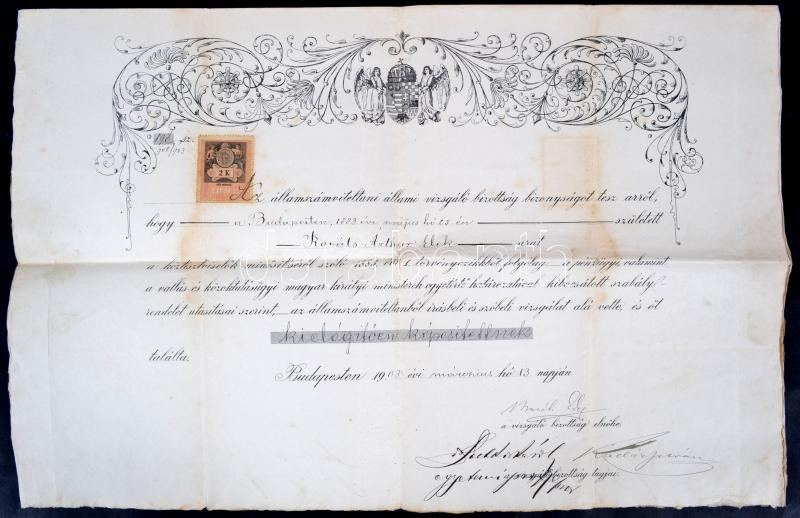 2 K
Az államszámviteltani állami vizsgáló bizottság bizonyságot tesz arról,
hogy a Budapesten, 1883 évi május hó 23-án született
Kováts Arthur Elek urat
a köztisztviselők minősítéséről szóló évi I. törvényczikkből folyólag a pénzügyi, valamint
a vallás és közoktatásügyi magyar királyi miniszterek egyetértő határozatával kibocsátott szabály-
rendelet utasításai szerint, az államszámviteltanból írásbeli és szóbeli vizsgálat alá vette, és őt
kielégitően képesitettnek
találta.
Budapesten 1903 évi március hó 13 napján
a vizsgáló bizottság elnöke.
bizottság tagjai.